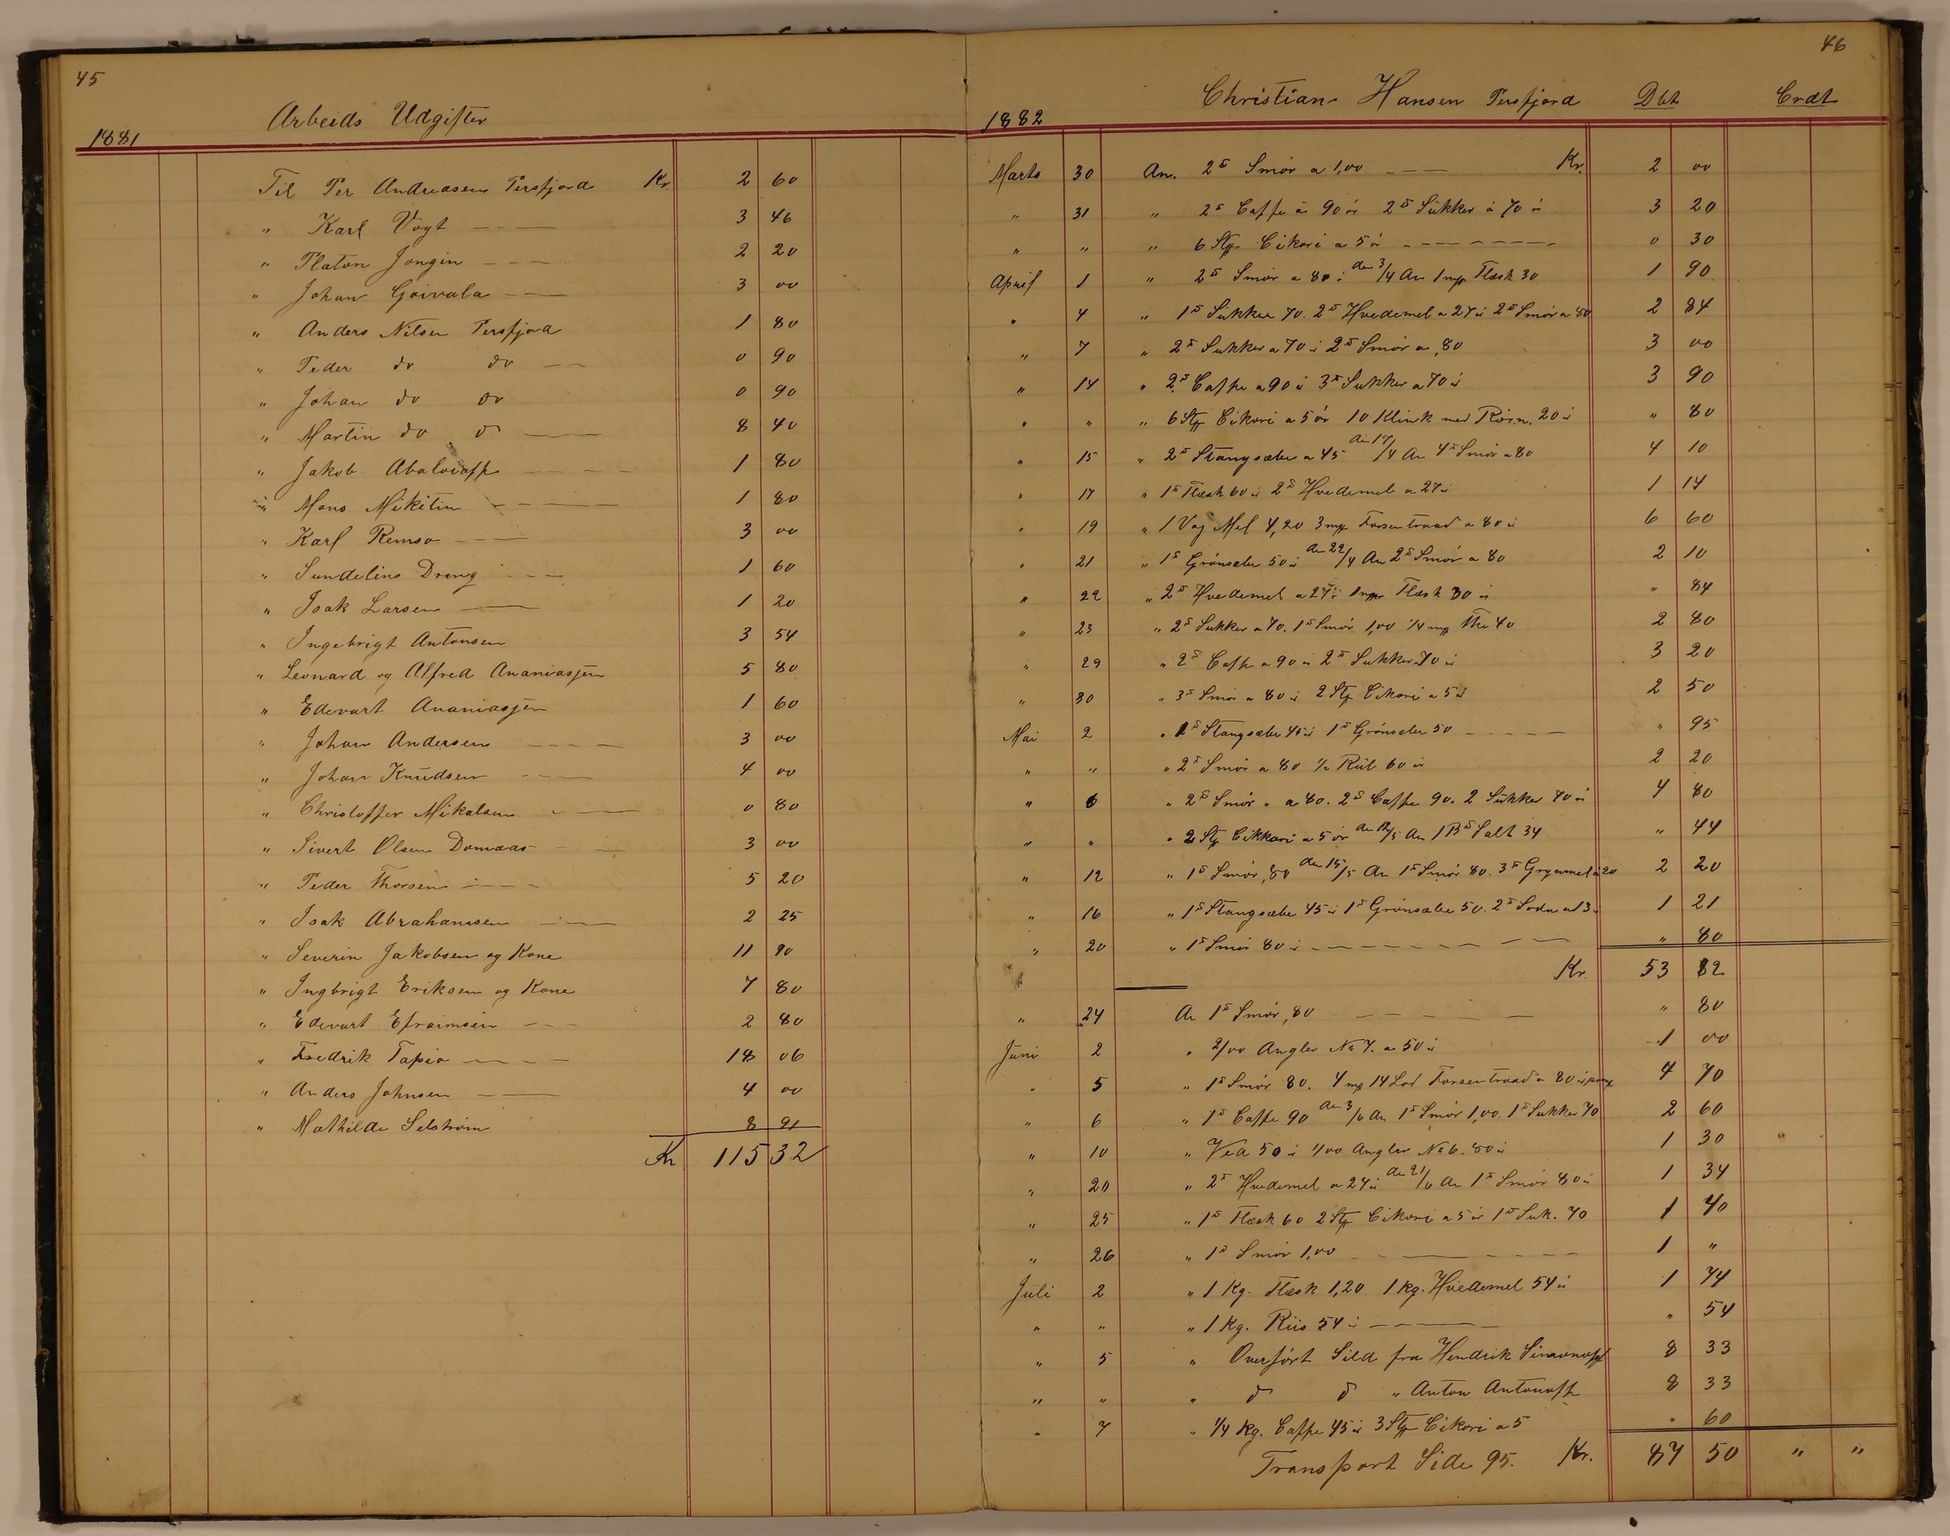 45
Arbeids Udgifter
1881
Til Per Andreasen Persfjord Kr. 2 60
" Karl Vogt 3 46
" Platon Jongin 2 20
" Johan Goivala 3 00
" Anders Nilsen Persfjord 1 80
" Peder do do 0 90
" Johan do do 0 90
" Martin do d 8 40
" Jakob 1 80
" Mons Mikitin 1 80
" Karl Remso 3 00
" Sundelins Dreng 1 60
" Isak Larsen 1 20
" Ingebrigt Antonsen 3 54
" Leonard og Alfred Ananiasjen 5 80
" Edevart Ananiasjen 1 60
" Johan Andersen 3 00
" Johan Knudsen 4 00
" Christoffer Mikalsen 0 80
" Sivert Olsen Domaas 3 00
" Peder Thorsen 5 20
" Isak Abrahamsen 2 25
" Severin Jakobsen og Kone 11 90
" Ingbrigt Eriksen og Kone 7 80
" Edevart Efraimsen 2 80
" Fredrik Tapio 18 06
" Anders Johnsen 4 00
" Mathilde Selstrøm 8 91
Kr 115 32
46
1882 Christian Hansen Persfjord Dbt Crdt
Marts 30 An. 2 ℔ Smør a 1,00 Kr. 2 00
" 31 " 2 ℔ Caffe a 90 ør 2 ℔ Sukker a 70 ø 3 20
" " " 6 Stk Cikori a 5 ø 0 30
April 1 " 2 ℔ Smør a 80 ø den 3/4 An 1 mk Flæsk 30 1 90
" 4 " 1 ℔ Sukker 70. 2 ℔ Hvedemel a 27 ø 2 ℔ Smør a 80 2 84
" 7 " 2 ℔ Sukker a 70 ø 2 ℔ Smør a ,80 3 00
" 14 " 2 ℔ Caffe a 90 ø 3 ℔ Sukker a 70 ø 3 90
" " " 6 Stk Cikori a 5 ør 10 Klink med Roin. 20 ø " 80
" 15 " 2 ℔ Stangsæbe a 45 den 17/4 An 4 ℔ Smør a 80 4 10
" 17 " 1 ℔ Flæsk 60 ø 2 ℔ Hvedemel a 27 ø 1 14
" 19 " 1 Vog Mel 4,20 3 mk Forsentraad a 80 ø 6 60
" 21 " 1 ℔ Grønsæbe 50 ø den 22/4 An 2 ℔ Smør a 80 2 10
" 22 " 2 ℔ Hvedemel a 27 ø 1 mk Flæsk 30 ø " 84
" 23 " 2 ℔ Sukker a 70. 1 ℔ Smør 1,00 1/4 mk The 40 2 80
" 29 " 2 ℔ Caffe a 90 ø 2 ℔ Sukker a 70 ø 3 20
" 30 " 3 ℔ Smør a 80 ø 2 Stk Cikori a 5 ø 2 50
Mai 2 " 1 ℔ Stangsæbe 45 ø 1 ℔ Grønsæbe 50 " 95
" " " 2 ℔ Smør a 80 1/2 Rül 60 ør 2 20
" 6 " 2 ℔ Smør " a 80. 2 ℔ Caffe 90. 2 Sukker 70 ø 4 80
" " " 2 Stk Cikkori a 5 ør den 12/5 An 1 B ℔ Salt 34 " 44
" 12 " 1 ℔ Smør ,80 den 15/5 An 1 ℔ Smør 80. 3 ℔ Grynmel a 20 2 20
" 16 " 1 ℔ Stangsæbe 45 ø 1 ℔ Grønsæbe 50. 2 ℔ Soda a 13 ø 1 21
" 20 " 1 ℔ Smør 80 ø " 80
Kr. 53 82
" 24 An 1 ℔ Smør ,80 " 80
Juni 2 " 2/00 Angler No 7. a 50 ø 1 00
" 5 " 1 ℔ Smør 80. 4 mk 14 Lod Forsentraad a 80 ø pr mk 4 70
" 6 " 1 ℔ Caffe 90 den 3/6 An 1 ℔ Smør 1,00. 1 ℔ Sukker 70 2 60
" 10 " Ved 50 ø 1/00 Angler No 6. 80 ø 1 30
" 20 " 2 ℔ Hvedemel a 27 ø den 21/6 An 1 ℔ Smør 80 ø 1 34
" 25 " 1 ℔ Flæsk 60 2 Stk Cikori a 5 ør 1 ℔ Suk. 70 1 40
" 26 " 1 ℔ Smør 1,00 1 "
Juli 2 " 1 Kg. Flæsk 1,20 1 kg. Hvedemel 54 ø 1 74
" " " 1 Kg. Riis 54 ø " 54
" 5 " Overført Sild fra Hendrik 8 33
" " " d d " Anton Antonoff 8 33
" 7 " 1/4 Kg. Caffe 45 ø 3 Stk Cikori a 5 " 60
Transport Side 95. Kr. 87 50 " "